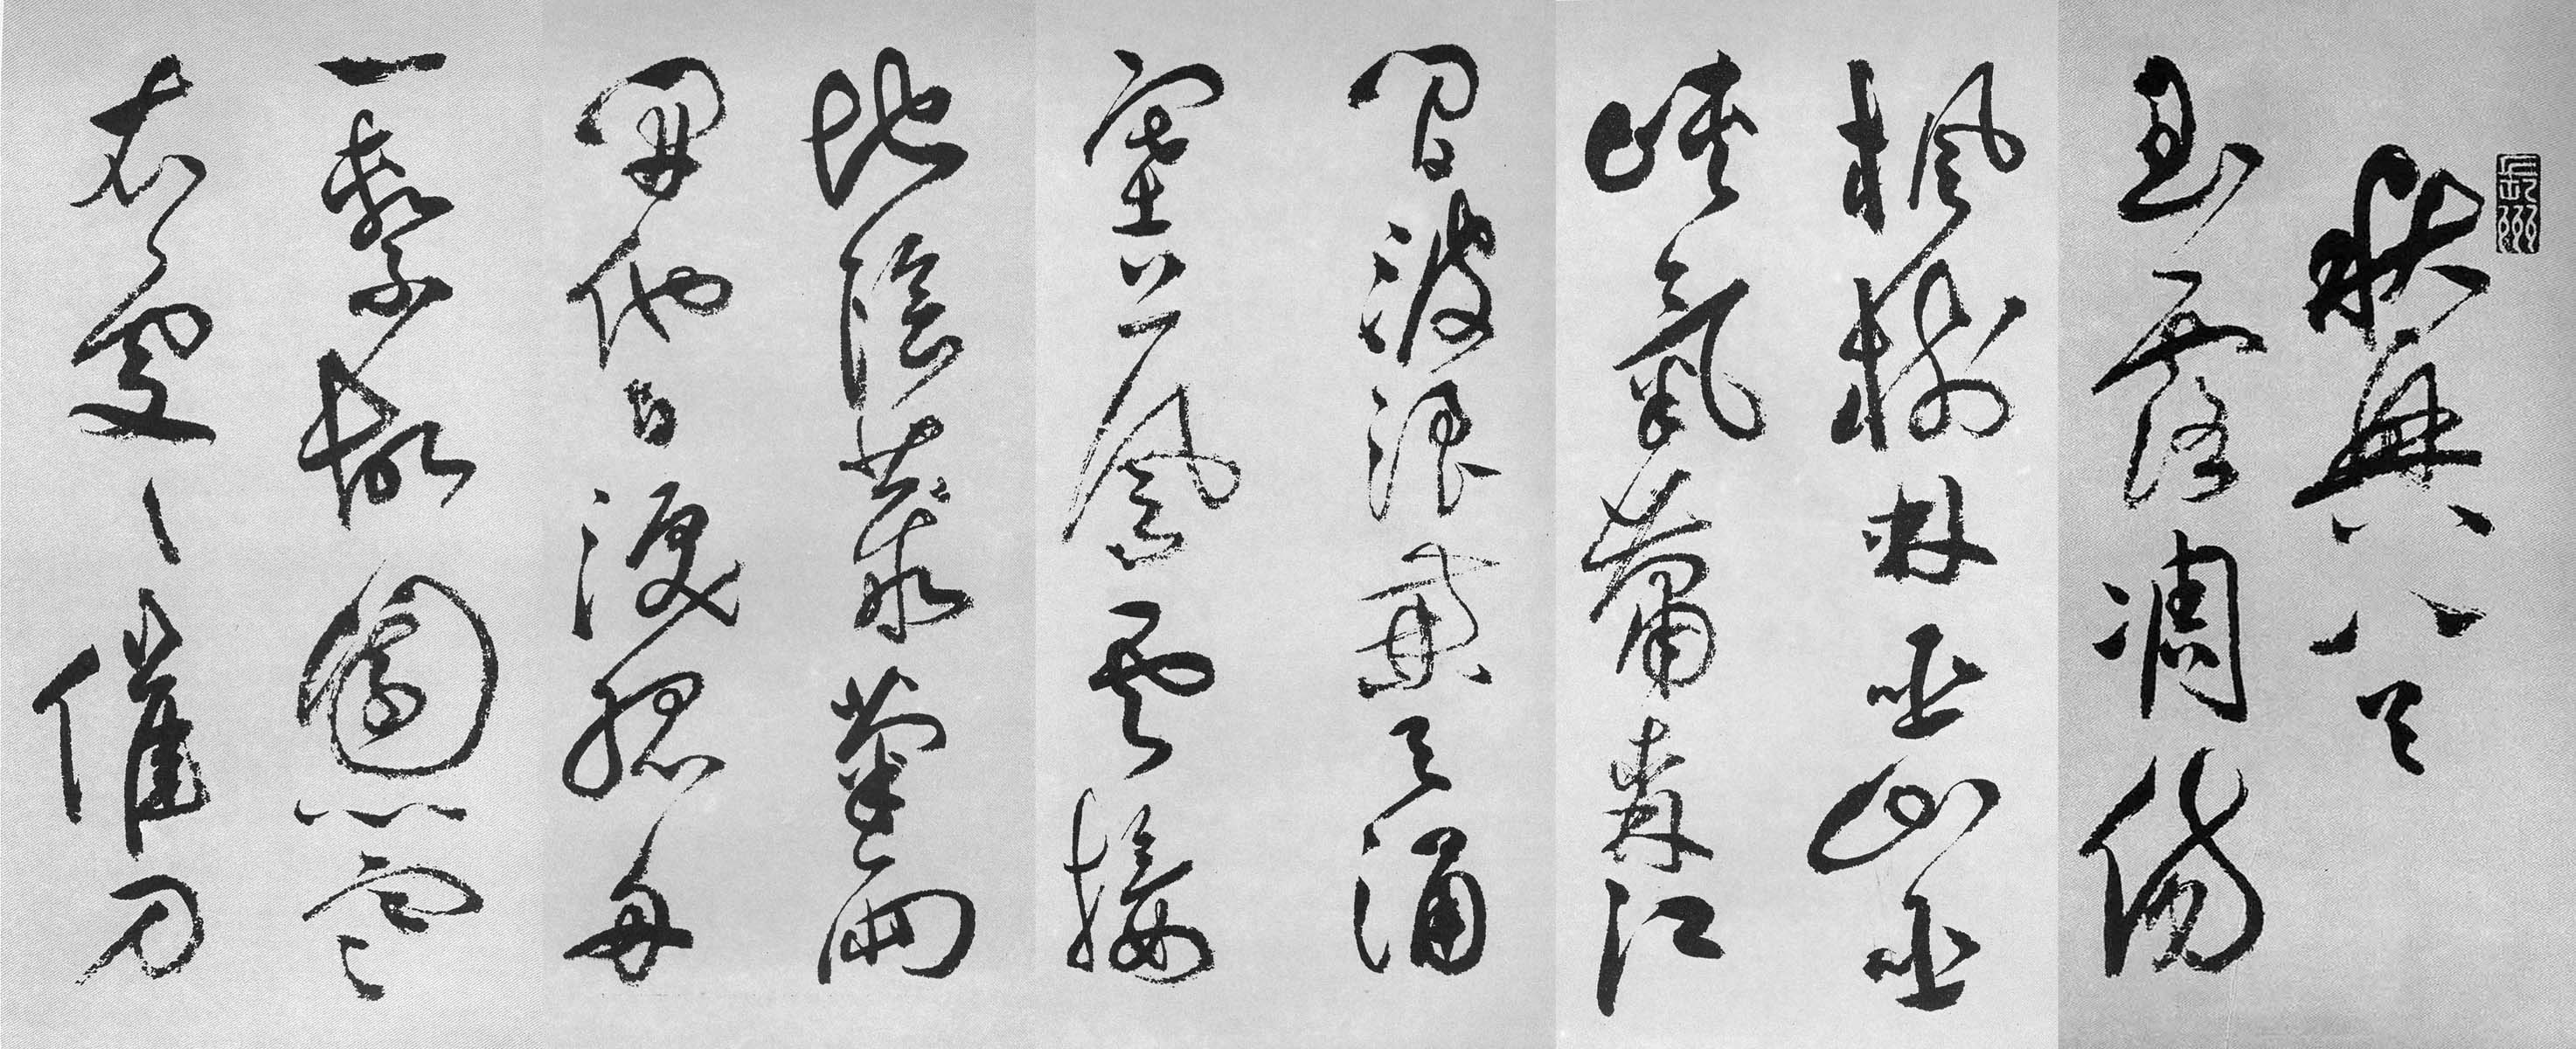 秋興八首
玉露凋傷
楓樹林巫山巫
峽氣蕭森江
間波浪兼天涌
塞上風雲接
地陰叢菊兩
開他日淚孤舟
一繫故園心寒
衣處〻催刀